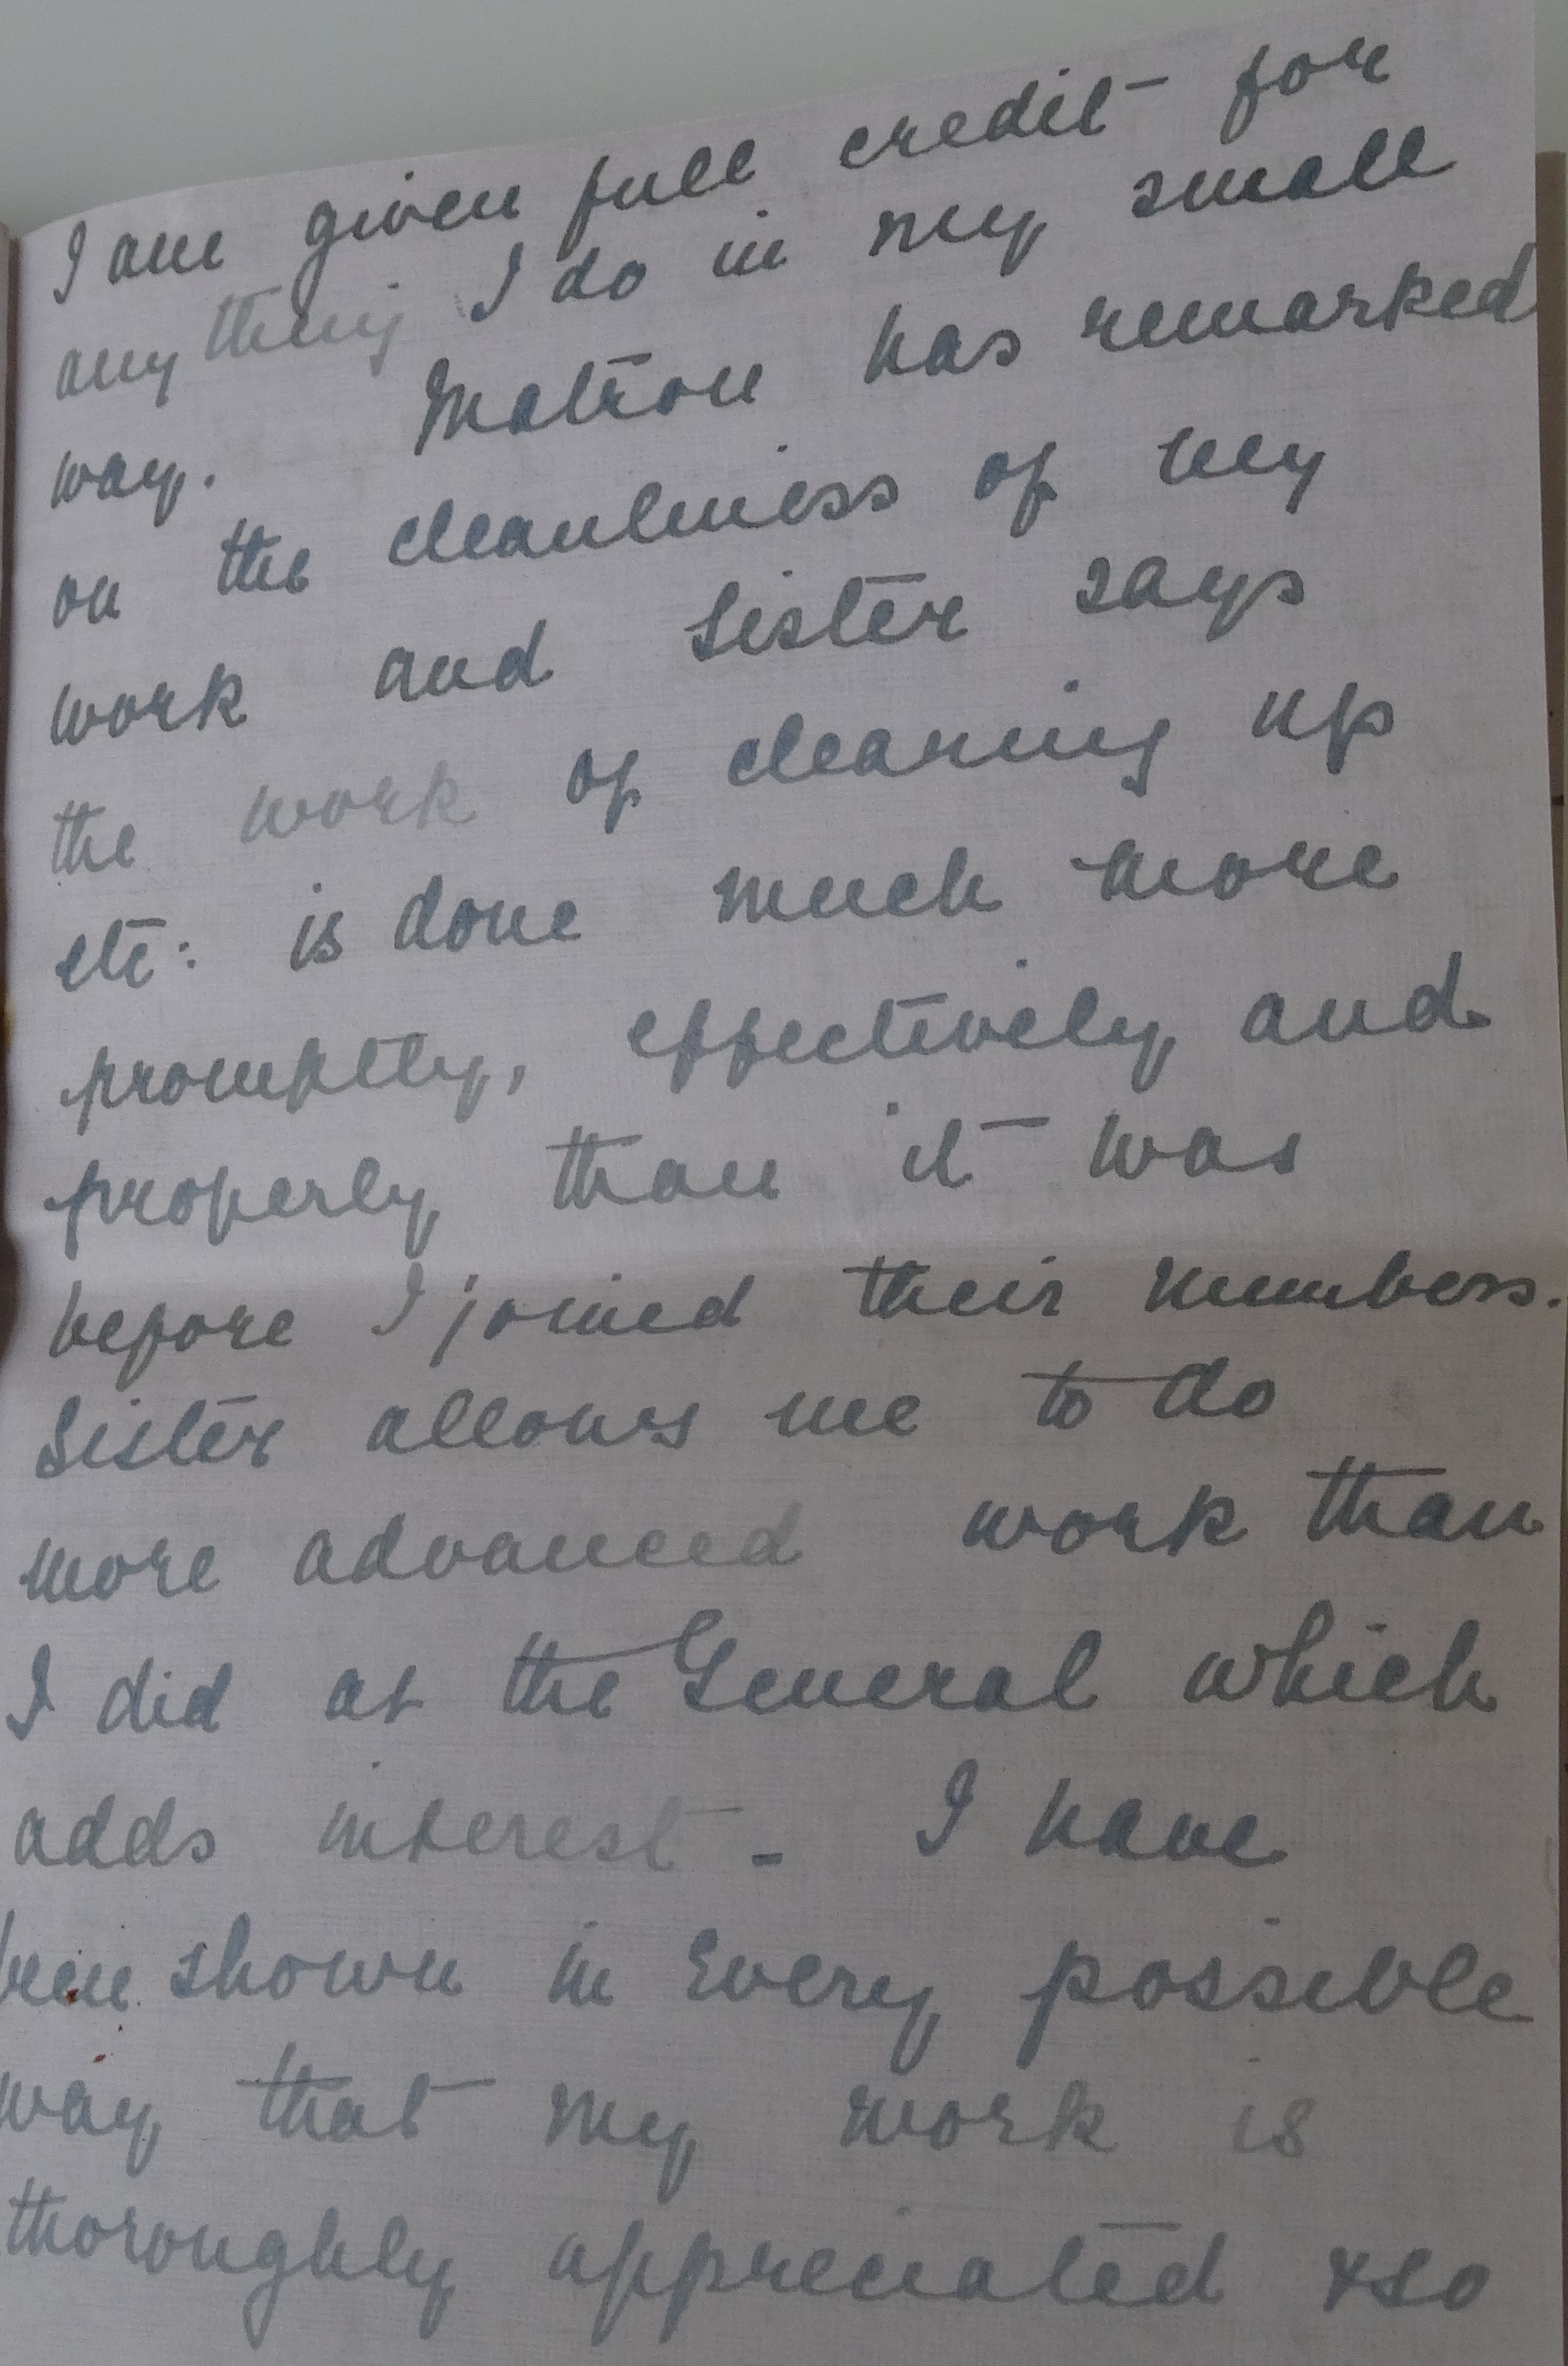 I am given full credit for
anything I do in my small
way. Matron has remarked
on the cleanliness of my
work and Sister says
the work of cleaning up
etc: is done much more
promptly, effectively and
properly than it was
before I joined their numbers.
Sister allows me to do
more advanced work than
I did at the General which
adds interest - I have
been shown in every possible
way that my work is
thoroughly appreciated & so